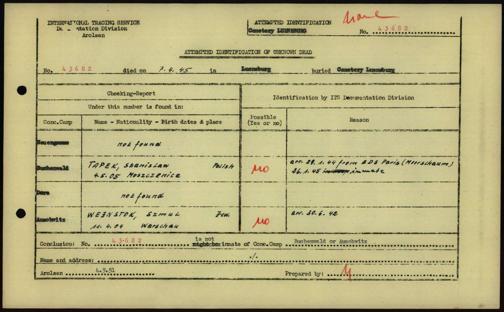 INTERNATIONAL TRACING SERVICE
Documentation Division
Arolsen
ATTEMPTED IDENTIFICATION
Cemetery LUENEBURG
No. 43682
ATTEMPTED IDENTIFICATION OF UNKNOWN DEAD
No. 43682 died on 7.4.45 in Lueneburg buried Cemetery Lueneburg
Checking-Report
Under this number is found in:
Identification by ITS Documentation Division
Conc.Camp
Name - Nationality - Birth dates & place
Possible
(Yes or no)
Reason
Neuengamme
not found
Buchenwald
TAPEK, Stanislaw Polish
4.5.05 Moszczenice
no
arr. 28.1.44 from BDS Paris (Meerschaum)
26.1.45 inmate
Dora
not found
Auschwitz
WEINSTOK, SZMUL Pole
11.4.04 Warschau
no
arr. 30.6.42
Conclusion: No. 43682 is not inmate of Conc.Camp Buchenwald or Auschwitz
Name and address: ./.
Arolsen 4.9.51
Prepared by: